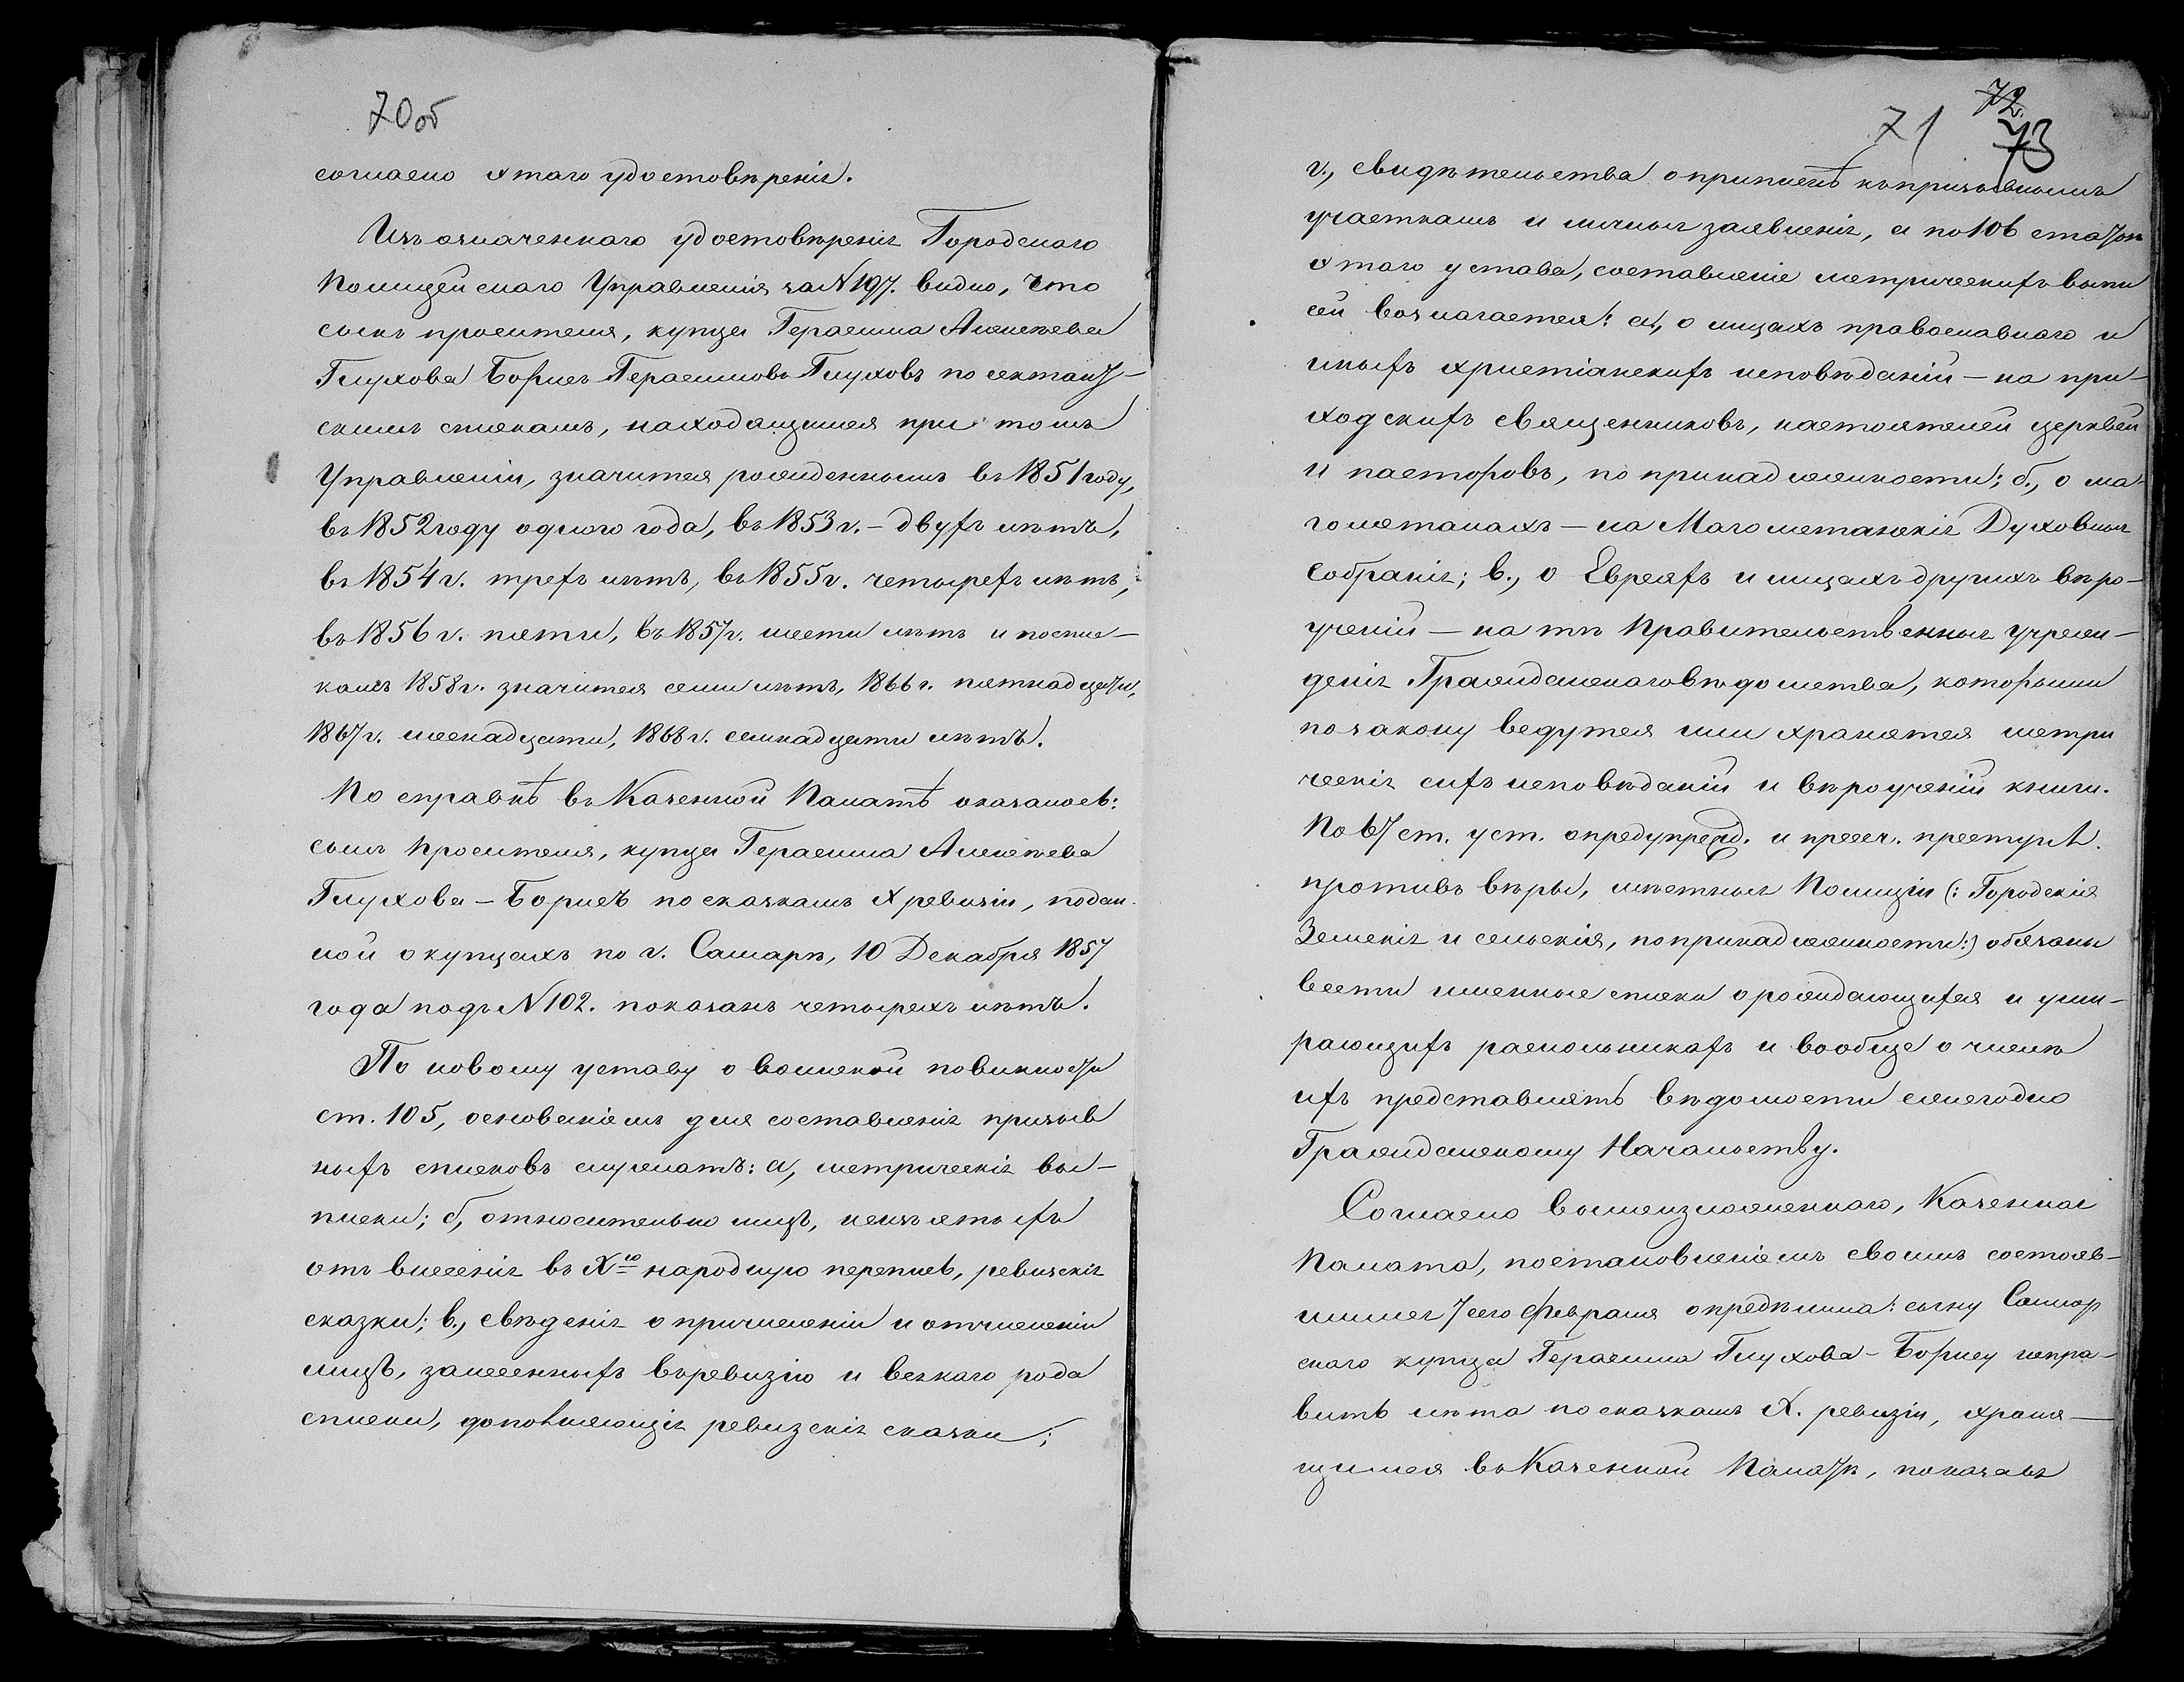 70об
согласно этаго удостовѣренія.
Изъ означеннаго удостовѣренія Городскаго
Полицейскаго Управленія за N 197. видно, что
сынъ просителя, купца Герасима Алексѣева
Глухова Борисъ Герасимовъ Глуховъ по сектант-
скимъ спискамъ, находящимся при томъ
Управленіи, значится рожденнымъ въ 1851 году,
въ 1852 году одного года, въ 1853 г. – двухъ лѣтъ,
въ 1854 г. трехъ лѣтъ, въ 1855 г. четырехъ лѣтъ,
въ 1856 г. пяти, въ 1857 г. шести лѣтъ и по спис-
камъ 1858 г. значится семи лѣтъ, 1866 г. пятнадцати,
1867 г. шеснадцати, 1868 г. семнадцати лѣтъ.
По справкѣ въ Казенной Палатѣ оказалось:
сынъ просителя, купца Герасима Алексѣева
Глухова – Борисъ по сказкамъ X ревизіи, подан
ной о купцахъ по г. Самарѣ, 10 Декабря 1857
года подъ N 102. показанъ четырехъ лѣтъ.
По новому уставу о воинской повинности
ст. 105, основаніемъ для составленія призыв
ныхъ списковъ служатъ: а, метрическія вы-
писки; б, относительно лицъ, неизъятыхъ
отъ внесенія въ Xю народную перепись, ревизскія
сказки; в., свѣденія о причисленіи и отчисленіи
лицъ, занесенныхъ въ ревизію и всякаго рода
списки, дополняющія ревизскія сказки;
71 72 73
г., свидѣтельства о припискѣ къ призывнымъ
участкамъ и личныя заявленія, а по 106 статьѣ
этаго устава, составленіе метрическихъ выпи
сей возлагается: а., о лицахъ православнаго и
иныхъ христіанскихъ исповѣданій – на при-
ходскихъ священниковъ, настоятелей церквей
и пасторовъ, по принадлежности; б., о ма-
гометанахъ – на Магометанскія Духовныя
Собранія; в., о Евреяхъ и лицахъ другихъ вѣро-
ученій – на тѣ Правительственныя учреж-
денія Гражданскаго вѣдомства, которыми
по закону ведутся или хранятся метри
ческія сихъ исповѣданій и вѣроученій книги.
По 67 ст. уст. о предупрежд. и пресеч. преступл.
противъ вѣры, мѣстныя Полиціи (: Городскія
Земскія и сельскія, по принадлежности:) обязаны
вести именные списки о рождающихся и уми-
рающихъ раскольникахъ и вообще о числѣ
ихъ представлять вѣдомости ежегодно
Гражданскому Начальству.
Согласно вышеизложеннаго, Казенная
Палата, постановленіемъ своимъ состояв-
шимся 7 сего февраля опредѣлила: сыну Самар
скаго купца Герасима Глухова – Борису испра-
вить лѣта по сказкамъ X. ревизіи, храня-
щимся въ Казенной Палатѣ, показавъ